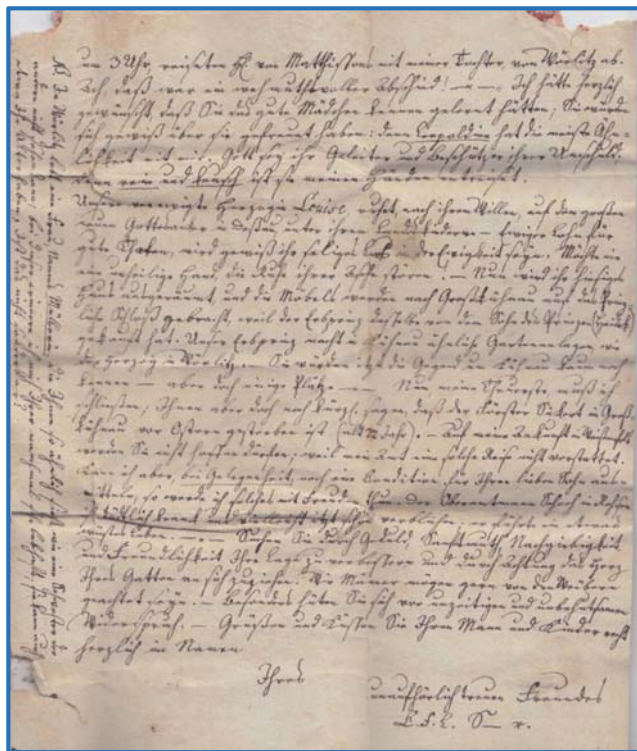 um 3 Uhr, reiseten H. von Matthissons mit meiner Tochter, von Wörlitz ab.
Ach, das war ein wehmuthsvoller Abschied! — Ich hätte herzlich
gewünscht, daß Sie das gute Mädchen kennen gelernt hätten; Sie würden
sich gewiß über sie gefreut haben: denn Leopoldine hat die meiste Ähn-
lichkeit mit mir. Gott sey ihr Geleiter und Beschützer ihrer Unschuld.
denn rein und keusch ist sie meinen Händen entreiset.
Unsre verewigte Herzogin Louise, ruhet, nach ihrem Willen, auf dem großen
neuen Gottesacker in Dessau, unter ihren — Ewiger Lohn für
gute Thaten, wird gewiß ihr seliges in der Ewigkeit seyn. Möchte nie
eine unheilige Hand die Ruhe ihrer Asche stören! — Nun wird ihr hiesiges
Haus ausgeräumt, und die Möbels werden nach Großkühnau auf das Prinz-
liche Schloß gebracht, weil der Erbprinz dasselbe von dem Sohn des Prinzen
gekauft hat. Unser Erbprinz macht in Kühnau ähnliche Gartenanlagen, wie
der Herzog in Wörlitz. — Sie würden itzt die Gegend um Kühnau kaum noch
kennen — aber doch einige Plätze. — Nun meine Theureste, muß ich
schließen; Ihnen aber doch noch kürzl. sagen, daß der Förster in Groß-
kühnau vor Ostern gestorben ist. — Auf meine Ankunft in
werden Sie nicht hoffen dürfen; weil mein Amt eine solche Reise nicht verstattet.
Kann ich aber, bei Gelegenheit, noch eine Condition für Ihren lieben Sohn aus-
mitteln, so werde ich solches mit Freuden thun. Der Oberamtmann
ist tödtlich krank und vielleicht itzt schon verblichen; er führte ein etwas
wüstes Leben. — Suchen Sie durch Geduld, Sanftmuth Nachgiebigkeit
und Freundlichkeit Ihre Lage zu verbessern und durch Achtung das Herz
Ihres Gatten an sich zu ziehen. Wir Männer mögen gern von den Weibern
geachtet seyn. — Besonders hüten Sie sich vor unzeitigen und unbehutsamen
Widerspruch. — Grüßen und küssen Sie Ihren Mann und Kinder recht
herzlich im Namen
Ihres
unaufhörlich treuen Freundes
C. F. L. S— r.
In Wörlitz lebt eine Frau, Namens die Ihnen so ähnlich sieht wie eine Schwester der
andern